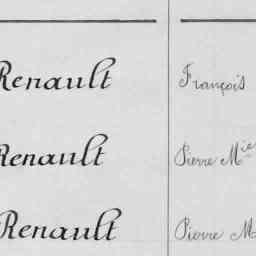 Renault François
Renault Pierre Mie
Renault Pierre M